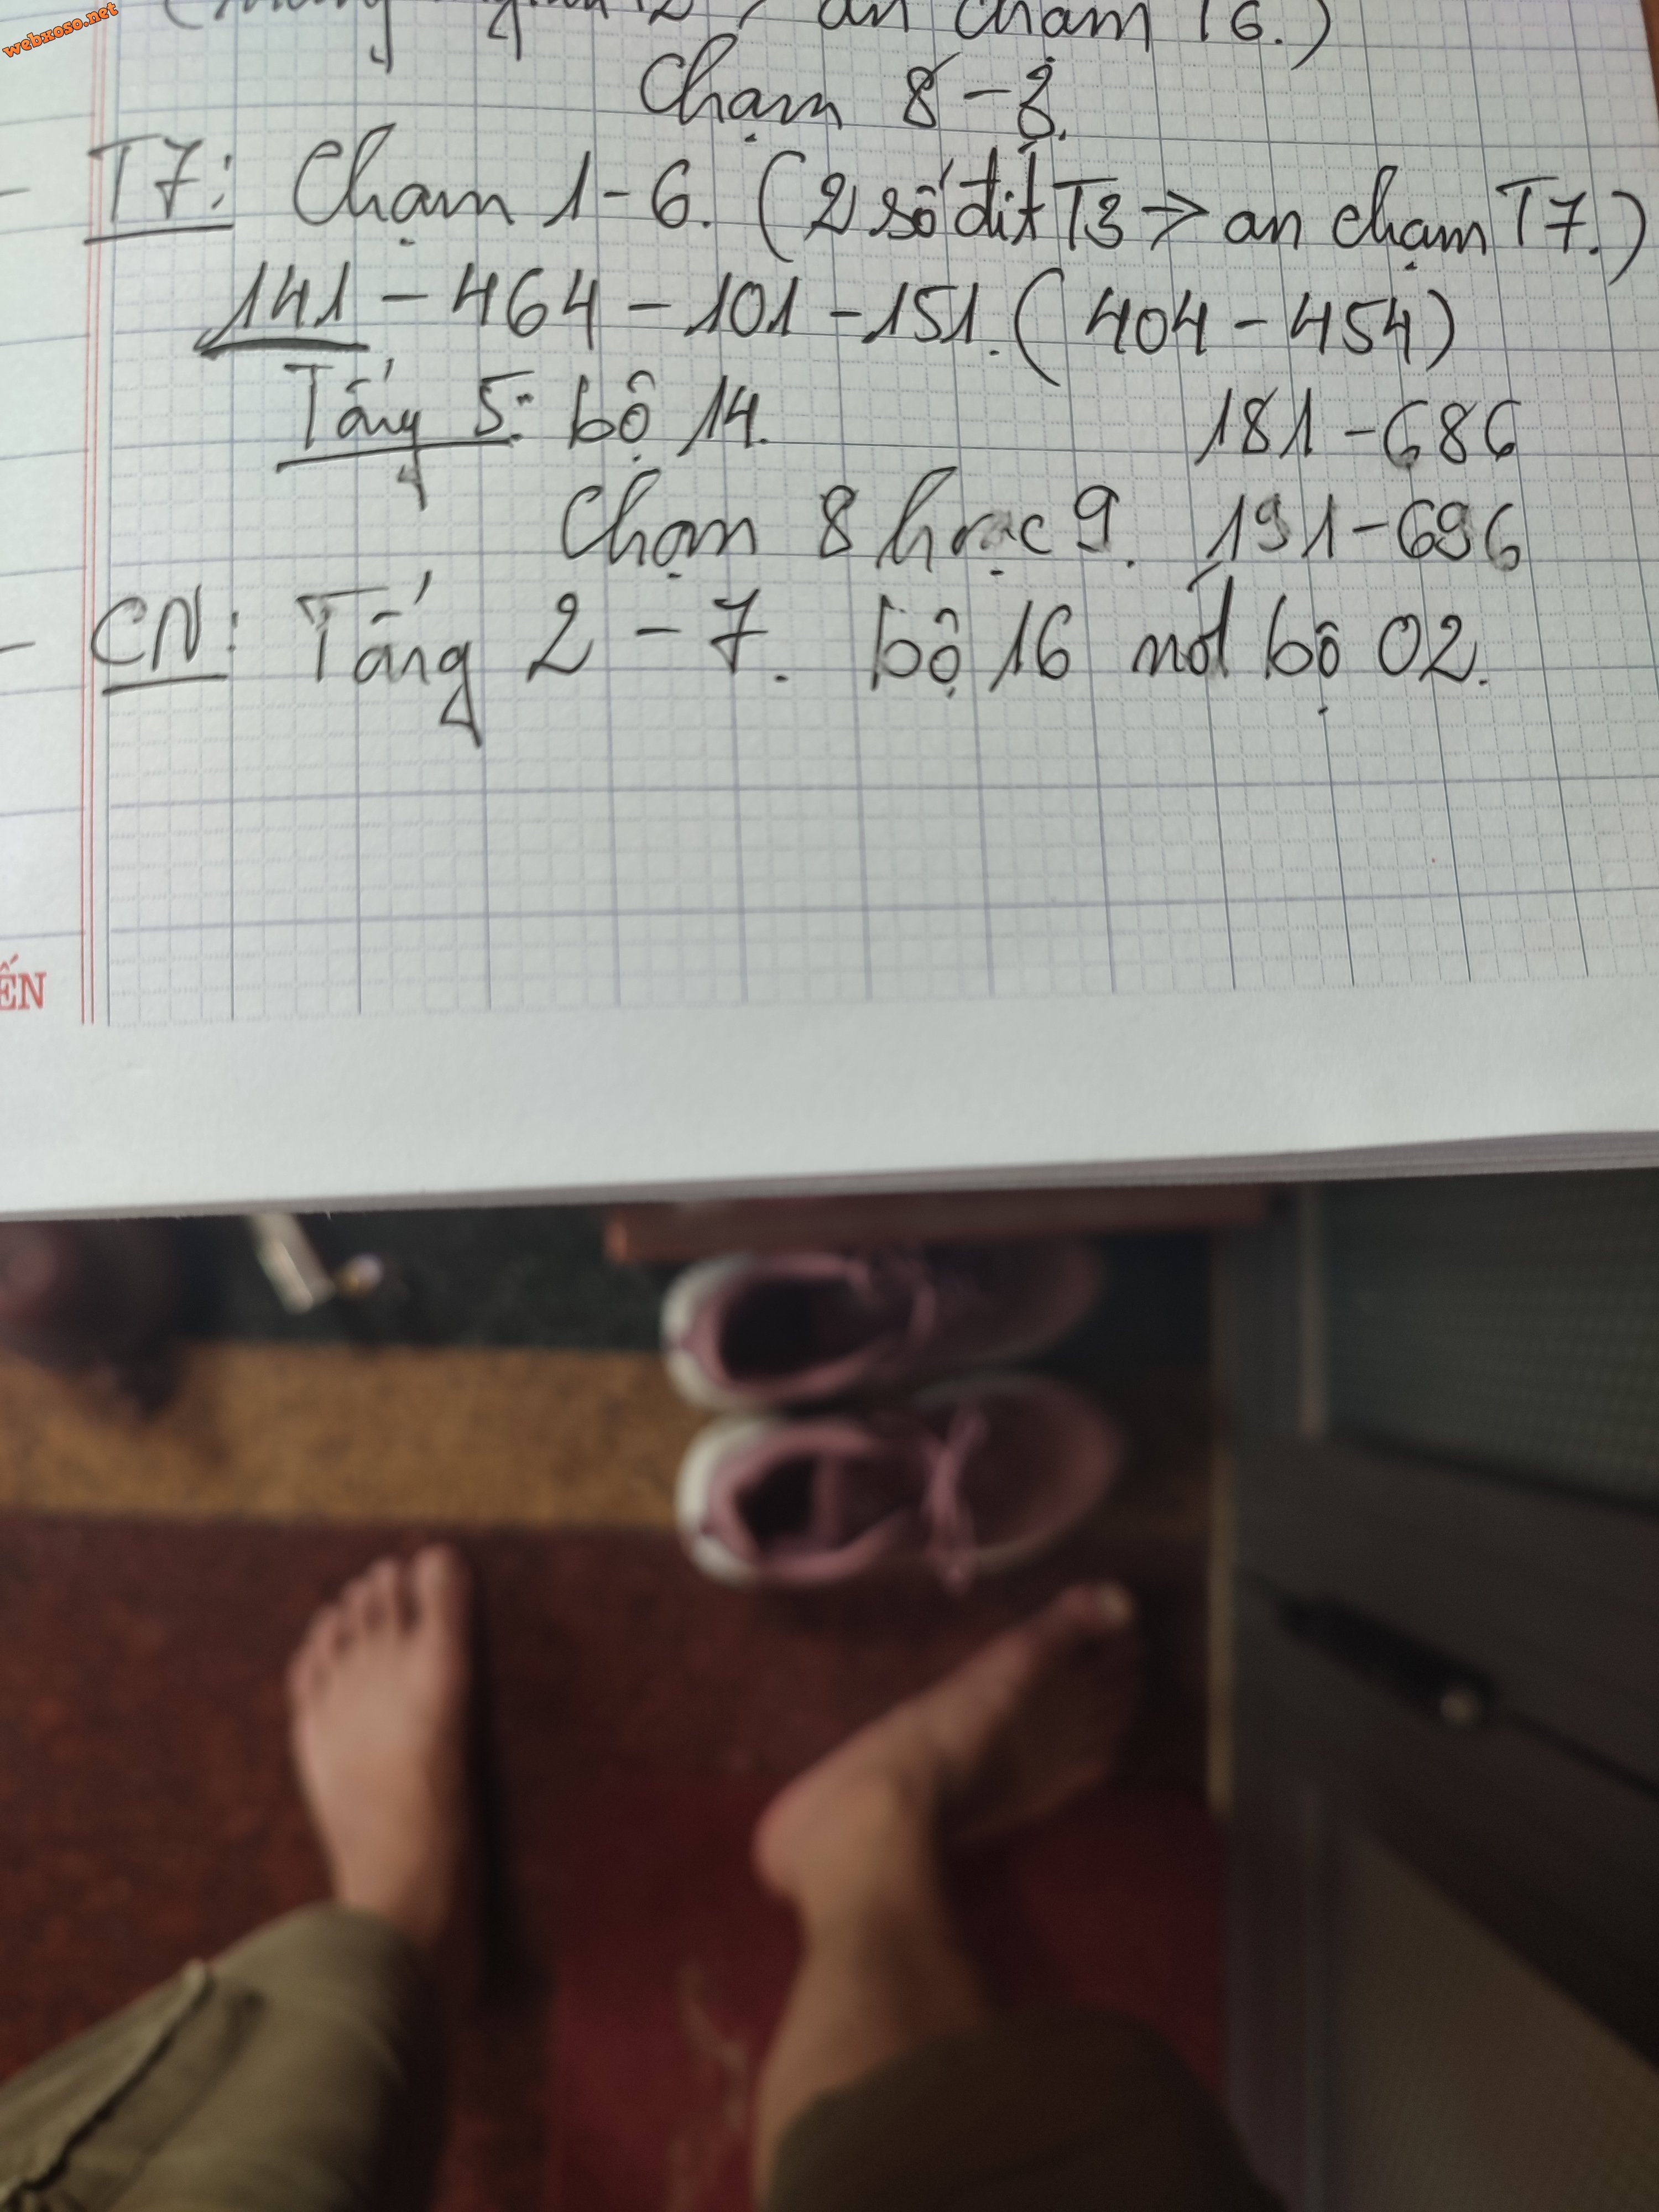 webxoso.net
ăn chạm T6.)
Chạm 8 - 3.
- T7: Chạm 1-6. (2 số đít T3 → ăn chạm T7.)
141 - 464 - 101 - 151. (404 - 454)
Tảng 5: bộ 14. 181 - 686
Chạm 8 hoặc 9. 191 - 696
- CN: Tảng 2 - 7. Bộ 16 nối bộ 02.
ẾN